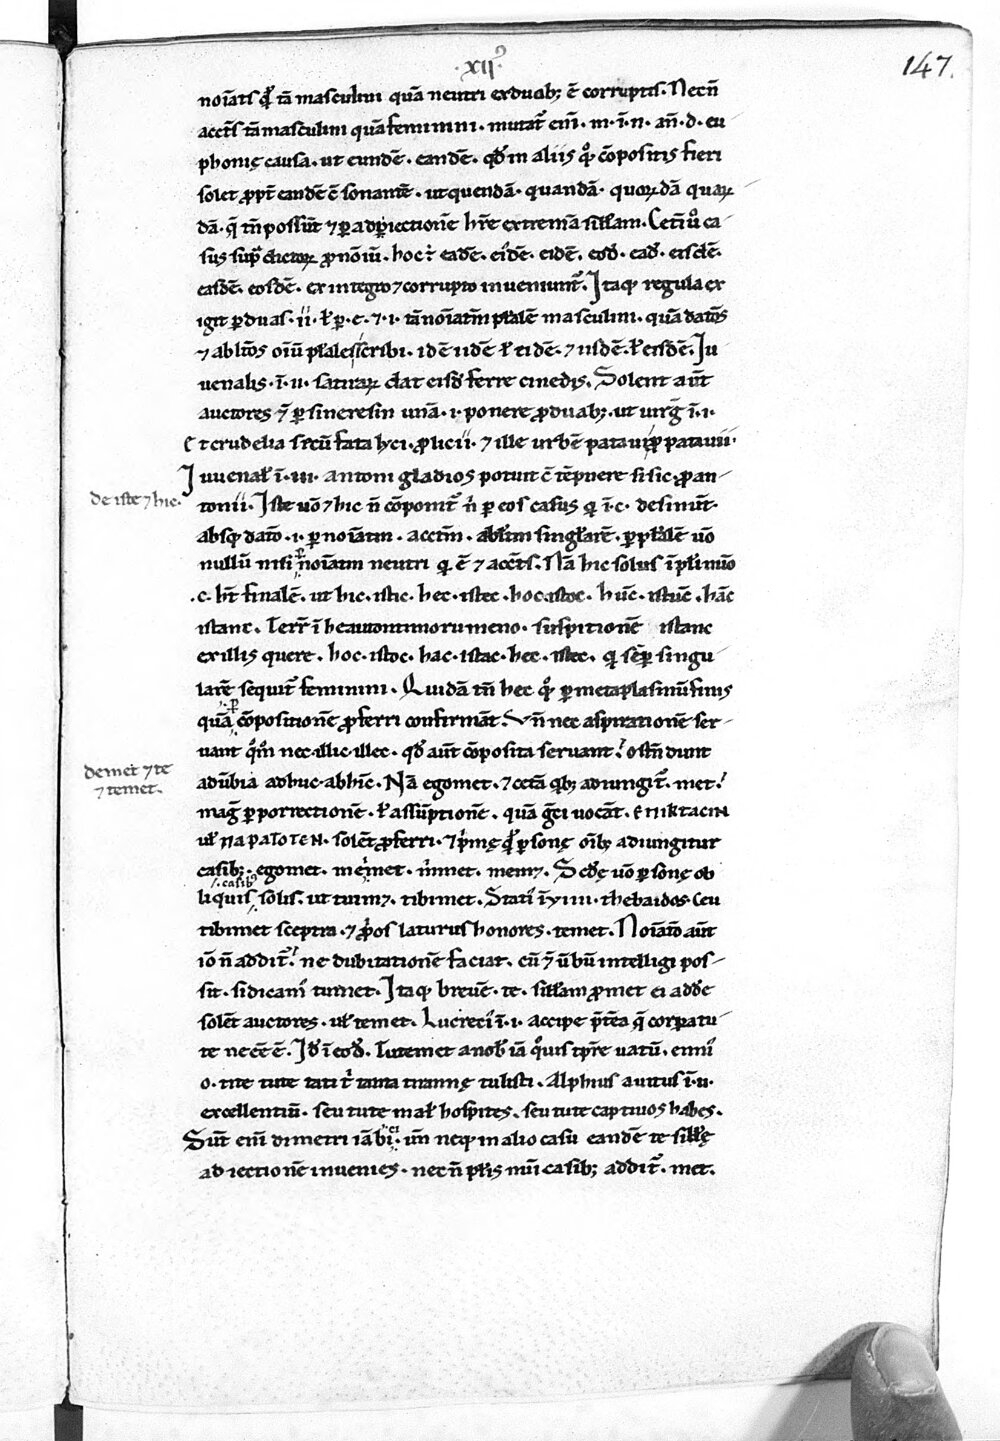 .XII.
147.
noīatˢ q̄ tā masculini quā neutri ex duab; ē corruptˢ. Necn̄
acctˢ tā masculini quā feminini. mutat᷑ eni᷑. m. ī. n. an̄. d. eu-
phonię causa. ut eundē. eandē. qđ in aliis q̊ cōpositis fieri
solet ꝓpt̄ eandē ē sonantē. ut quendā. quandā. quoꝝdā quaꝝ-
dā. q̄ tn̄ possūt ⁊ ꝑ adiectionē hr̄e extremā sill̄am. Cet̄i ů ca-
sus sup̄ dictoꝝ ꝓnoīū. hoc ē eadē. eidē. eidē. eođ. eađ. eisdē.
easdē. eosdē. ex integro ⁊ corrupto inueniunt᷑. Itaq; regula ex
igit ꝑ duas. ii. ł ꝑ. e. ⁊. i. tā noīatm̄ pł̄alē masculini. quā datōs
⁊ abltōs oīū pł̄ales scribi. idē iidē ł eidē. ⁊ iisdē. ł eisdē. Iu
uenalis. ī. ii. satiraꝝ dat eisđ ferre cinedis. Solent aūt
auctores ⁊̄ ꝑ sineresin unā. i. ponere ꝓ duab;. ut uirḡ ī. i.
Et crudelia secū fata lyci. ꝓ licii. ⁊ ille urbē pataui ꝓ patauii.
Iuuenał ī. iii. antoni gladios potuit ētēpnere si sic. ꝓ an-
de iste ⁊ hic.
tonii. Iste uō ⁊ hic n̄ cōponit᷑ n̄ ꝑ eos casus q̄ ī. c. desinūt.
absq; datō. i. ꝑ noīatm̄. acctm̄. abltm̄ singł̄arē. ꝑ pł̄alē uō
nullū nisi ꝑ noīatm̄ neutri q̄ ē ⁊ acctˢ. Nā hic solus ī pł̄i mūo
.c. ht̄ finalē. ut hic. istic. hec. istec. hoc. istoc. hūc. istūc. hāc
istanc. Terr̄ ī heautontimorumeno. suspitionē istanc
ex illis quere. hoc. istoc. hac. istac. hec. istec. q̄ semꝑ singu-
larē sequit᷑ feminini. Quidā tn̄ hec q̊ ꝑ metaplasmū finis
quā ꝑ cōpositionē ꝓferri confirmāt Vn̄ nec aspirationē ser-
uant q̊m̄ nec. illic illec. qđ aūt cōposita seruant. ostn̄dunt
de met ⁊ te
aduībia adhuc. abhīc. Nā egomet. ⁊ cetā qb; adiungit᷑. met.
⁊ temet.
mag̣ ꝑ porrectionē. ł assūptionē. quā gr̄ci uocāt. ЄΠΙΚΤΑCΙΝ
uł ΠΑΡΑΓΟΓΕΝ. solēt ꝓferri. ⁊ p̄mę q̄ ꝑsonę oīb; adiungitur
casib;. egomet. meimet. mimet. mem⁊. Scđę uō ꝑsonę ob
casib;
liquis solis. ut tuim⁊. tibimet. Stati᷑ ī viiii. thebaidos. Ceu
tibimet sceptra. ⁊ ꝓp̄os laturus honores. temet. Noīatō aūt
iō n̄ addit᷑. ne dubitationē faciat. cū ⁊̄ ūbū intelligi pos-
sit. si dicam᷑ tumet. Itaq; breuē. te. sill̄am ꝓ met ei addē
solēt auctores. uł temet. Lucreci᷑ ī. i. accipe p̄tea q̄ corpatu-
te necē ē. Iđ ī eođ. Tutemet a nob᷑ iā q̊uis tpr̄e uatū. enni᷑
o. tite tute tati t᷑ tanta tirannę tulisti. Alphius auitus ī. ii.
excellentiū. seu tute mał hospites. seu tute captiuos habes.
Sūt eni᷑ dimetri iābici. ūm̄ neq; in alio casu eandē te sill̄ę
adiectionē inuenies. necn̄ pł̄is nūi casib; addit᷑. met.